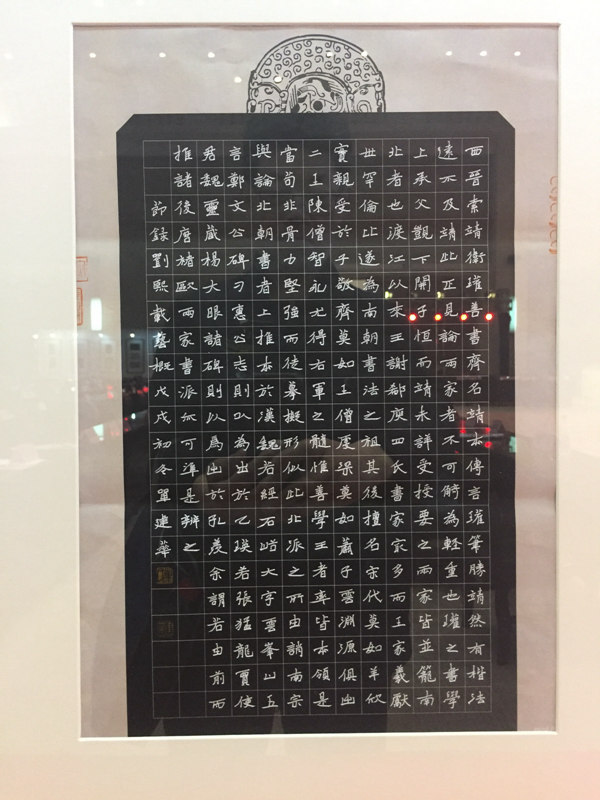 西晉索靖衛瓘善書齊名靖本傳言瓘筆勝靖然有楷法
遠不及靖此正見論兩家者不可觭為輕重也瓘之書學
上承父覬下開子恒而靖未詳受授要之兩家皆並籠南
北者也渡江以來王謝郗庾四氏書家最多而王家羲獻
世罕倫比遂為南朝書法之祖其後擅名宋代莫如羊欣
實親受於子敬齊莫如王僧虔梁莫如蕭子雲淵源俱出
二王陳僧智永尤得右軍之髓惟善學王者率皆本領是
當苟非骨力堅強而徒摹擬形似此北派之所由誚南宗
與論北朝書者上推本於漢魏若經石峪大字雲峯山五
言鄭文公碑刁惠公志則以為出於乙瑛若張猛龍賈使
君魏靈藏楊大眼諸碑則以為出於孔羨余謂若由前而
推諸後唐褚歐兩家書派亦可準是辨之
節錄劉熙載藝概戊戌初冬單建華